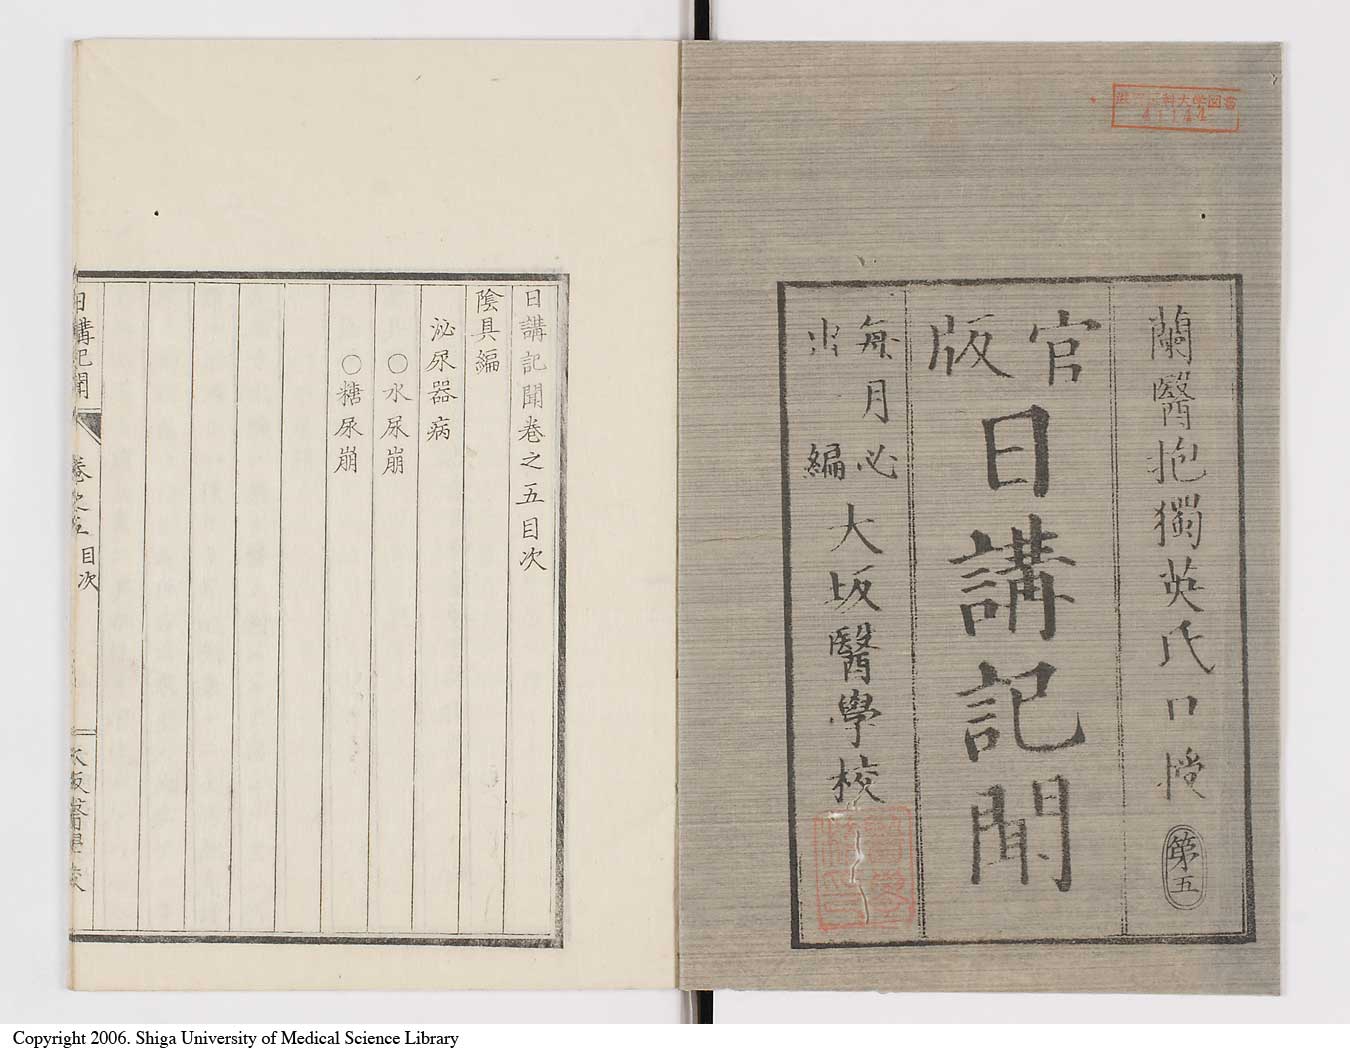 蘭醫抱獨英氏口授 第五
官版
日講記聞
毎月必出編
大坂醫學校
41144
日講記聞卷之五目次
陰具編
泌尿器病
○水尿崩
○糖尿崩
日講記聞 卷之五 目次
大阪醫學校
Copyright 2006. Shiga University of Medical Science Library